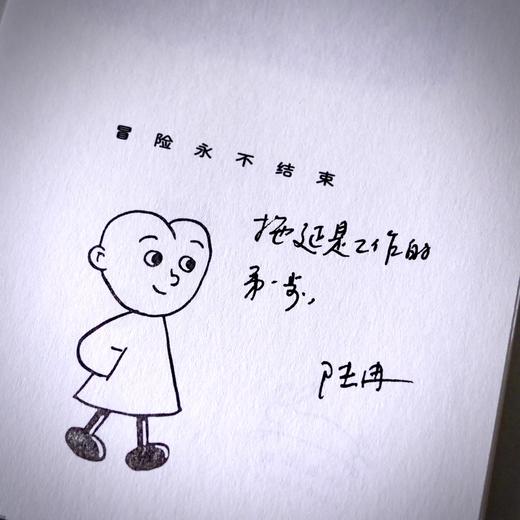 冒险永不结束
拖延是工作的
第一步,
陆冉